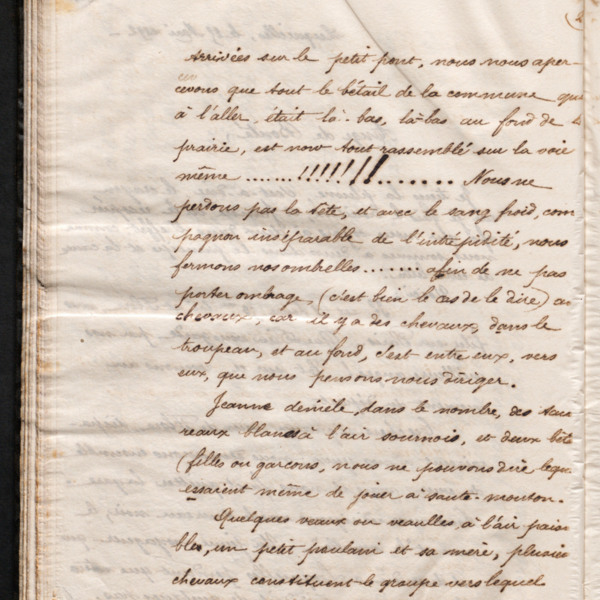 2
Arrivées sur le petit pont, nous nous aper-
cevons que tout le bétail de la commune que
à l'aller, était là-bas, là-bas au fond de la
prairie, est now tout rassemblé sur la voie
même ......!!!!!!!!....... Nous ne
perdons pas la tête, et avec le sang froid, com
pagnon inséparable de l'intrépidité, nous
fermons nos ombrelles....... afin de ne pas
porter ombrage, (c'est bien le cas de le dire) au
chevaux, car il y a des chevaux, dans le
troupeau, et au fond, c'est entre eux, vers
eux, que nous pensons nous diriger.
Jeanne démêle, dans le nombre, des tau
reaux blancs à l'air sournois, et deux bête
(filles ou garçons, nous ne pouvons dire leque
essaient même de jouer à saute-mouton.
Quelques veaux ou veaulles, à l'air paisi
bles, un petit poulain et sa mère, plusieu
chevaux constituent le groupe vers lequel